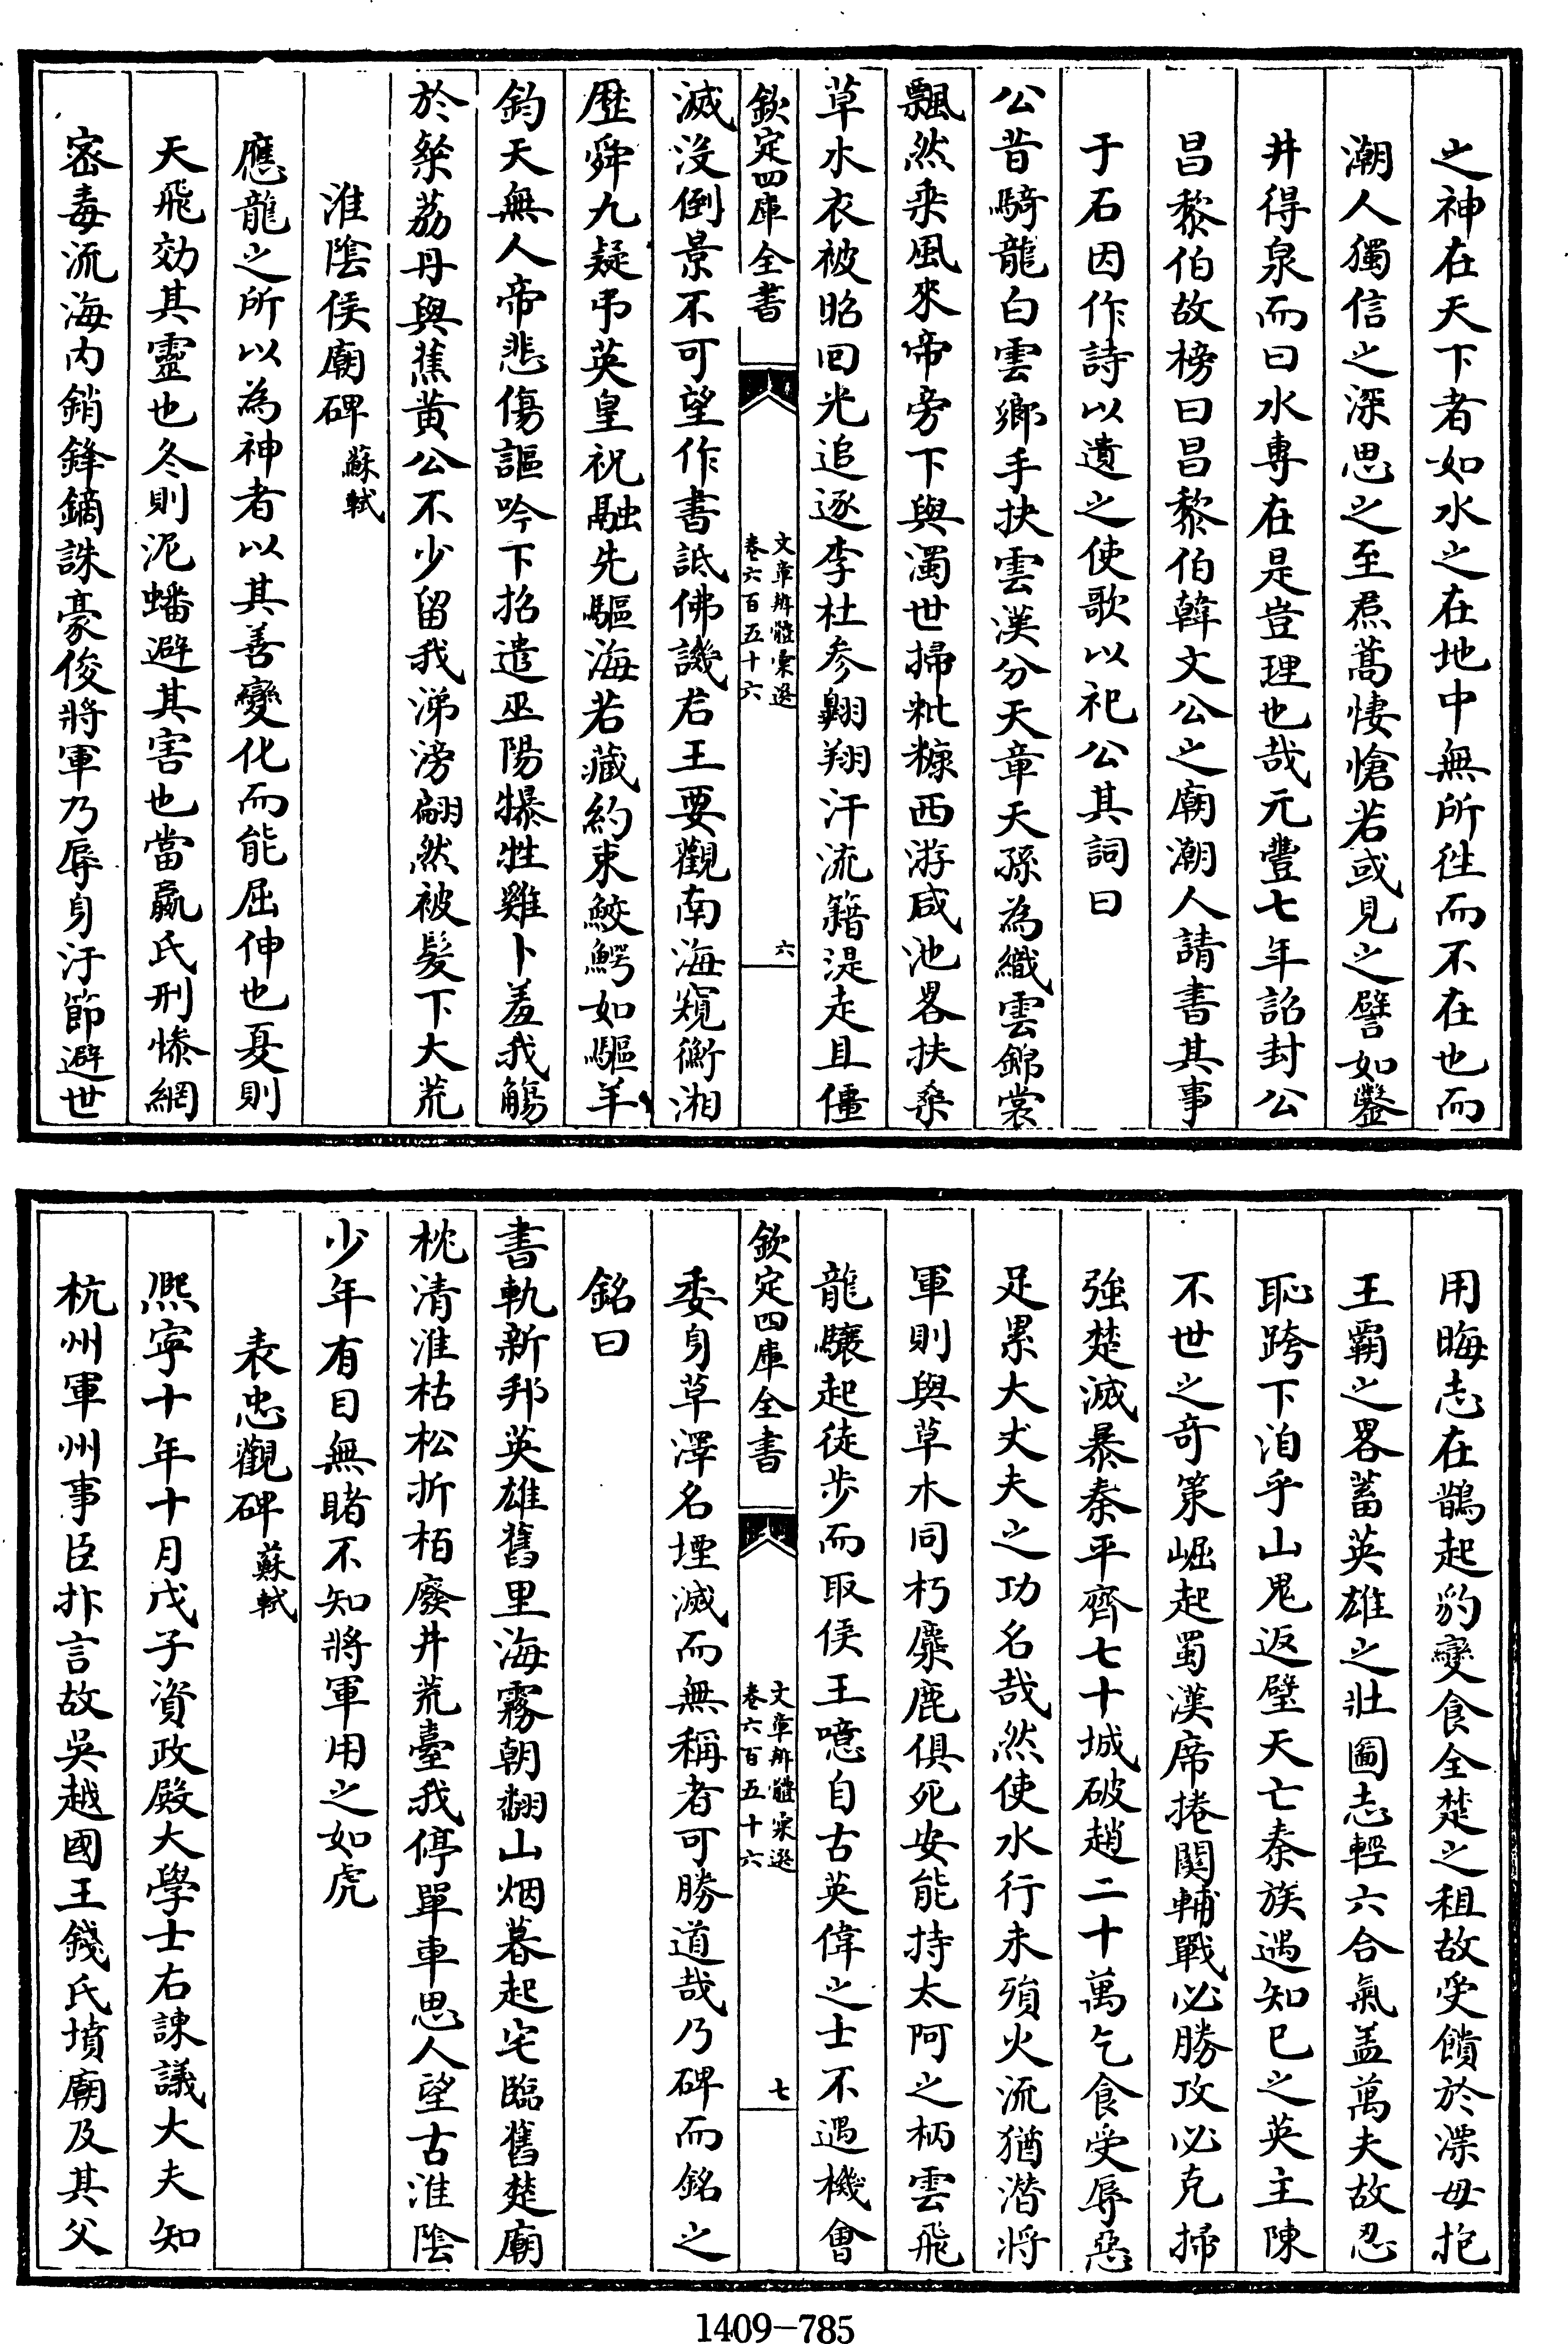 之神在天下者如水之在地中無所徃而不在也而
潮人獨信之深思之至焄蒿悽愴若或見之譬如鑿
井得泉而曰水專在是豈理也哉元豐七年詔封公
昌黎伯故榜曰昌黎伯韓文公之廟潮人請書其事
于石因作詩以遺之使歌以祀公其詞曰
公昔騎龍白雲鄉手抉雲漢分天章天孫為織雲錦裳
飄然乘風來帝旁下與濁世掃粃糠西游咸池畧扶桑
草水衣被昭回光追逐李杜參翺翔汗流籍湜走且僵
欽定四庫全書
文章辨體彙選
卷六百五十六
六
滅没倒景不可望作書詆佛譏君王要觀南海窺衡湘
歷舜九疑弔英皇祝融先驅海若藏約束鮫鰐如驅羊
鈞天無人帝悲傷謳吟下招遣巫陽犦牲雞卜羞我觴
於粲荔丹與蕉黄公不少留我涕滂翩然被髮下大荒
淮陰侯廟碑 蘇軾
應龍之所以為神者以其善變化而能屈伸也夏則
天飛効其靈也冬則泥蟠避其害也當嬴氏刑慘網
宻毒流海内銷鋒鏑誅豪俊將軍乃辱身汙節避世
用晦志在鵲起豹變食全楚之租故受饋於漂母抱
王霸之畧蓄英雄之壯圖志輕六合氣盖萬夫故忍
恥跨下洎乎山鬼返璧天亡秦族遇知已之英主陳
不世之奇策崛起蜀漢席捲關輔戰必勝攻必克掃
強楚滅暴秦平齊七十城破趙二十萬乞食受辱惡
足累大丈夫之功名哉然使水行未殞火流猶潜將
軍則與草木同朽麋鹿俱死安能持太阿之柄雲飛
龍驤起徒步而取侯王噫自古英偉之士不遇機會
欽定四庫全書
文章辨體彙選
卷六百五十六
七
委身草澤名堙滅而無稱者可勝道哉乃碑而銘之
銘曰
書軌新邦英雄舊里海霧朝翻山烟暮起宅臨舊楚廟
枕清淮枯松折栢廢井荒臺我停單車思人望古淮陰
少年有目無睹不知將軍用之如虎
表忠觀碑 蘇軾
熙寧十年十月戊子資政殿大學士右諫議大夫知
杭州軍州事臣抃言故吳越國王錢氏墳廟及其父
1409-785